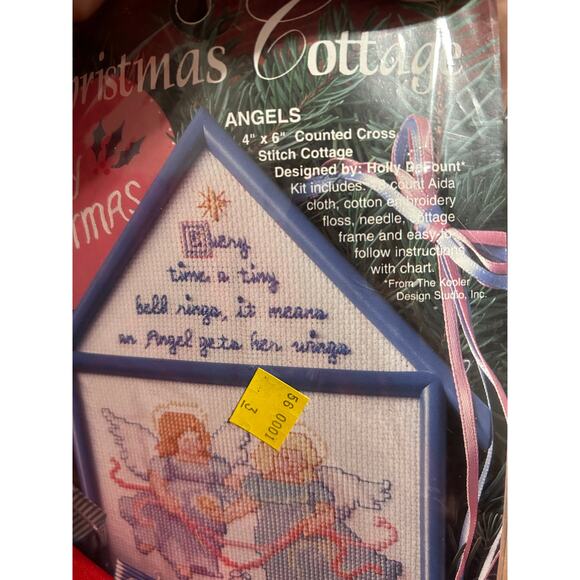 Christmas Cottage
ANGELS
4" x 6" Counted Cross
Stitch Cottage
Designed by: Holly DeFount*
Kit includes: count Aida
cloth, cotton embroidery
floss, needle, cottage
frame and easy-to-
follow instructions
with chart.
*From The Kooler
Design Studio, Inc.
Every
time a tiny
bell rings, it means
an Angel gets her wings
56 0001
3